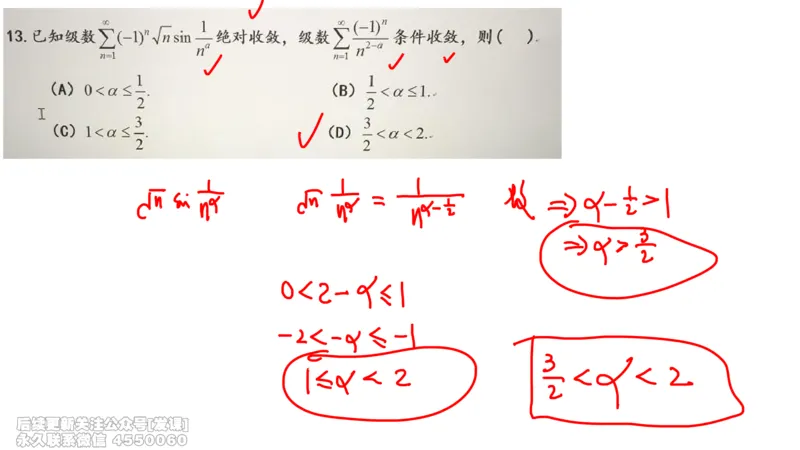 13.已知级数 ∑_{n=1}^{∞} (-1)^n √n sin 1/n^a 绝对收敛，级数 ∑_{n=1}^{∞} (-1)^n/n^{2-a} 条件收敛，则(  ).
(A) 0<α≤1/2. (B) 1/2<α≤1.
(C) 1<α≤3/2. (D) 3/2<α<2.
√n sin 1/n^α √n 1/n^α = 1/n^{α-1/2} ⇒ α-1/2>1
⇒ α>3/2
0<2-α≤1
-2<-α≤-1
1≤α<2
3/2<α<2
后续更新关注公众号[发课]
永久联系微信 4550060